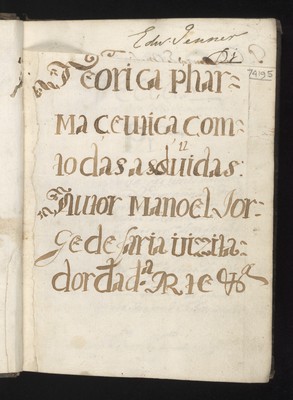 Edw. Jenner
74195
Teorica phar=
maceutica com
todas as duuidas:
Autor Manoel Jor=
ge de faria uizita
dor da d.ª